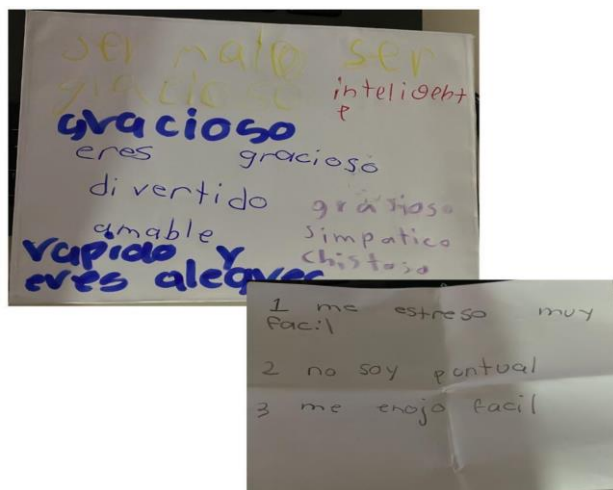 ser malo ser
gracioso
inteligent
e
gracioso
eres gracioso
divertido
grasioso
amable
simpatico
chistoso
rapido y
eres alegres
1 me estreso muy
facil
2 no soy puntual
3 me enojo facil